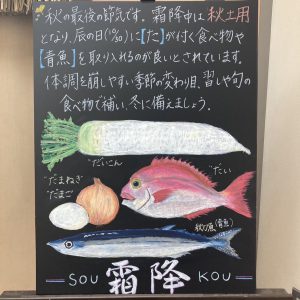 秋の最後の節気です。霜降中は秋土用
となり、辰の日(10/30)に【た】が付く食べ物や
【青魚】を取り入れるのが良いとされています。
体調を崩しやすい季節の変わり目、習しや旬の
食べ物で補い、冬に備えましょう。
"だいこん
"たまねぎ
"たまご
"たい
秋刀魚(青魚)
SOU 霜降 KOU